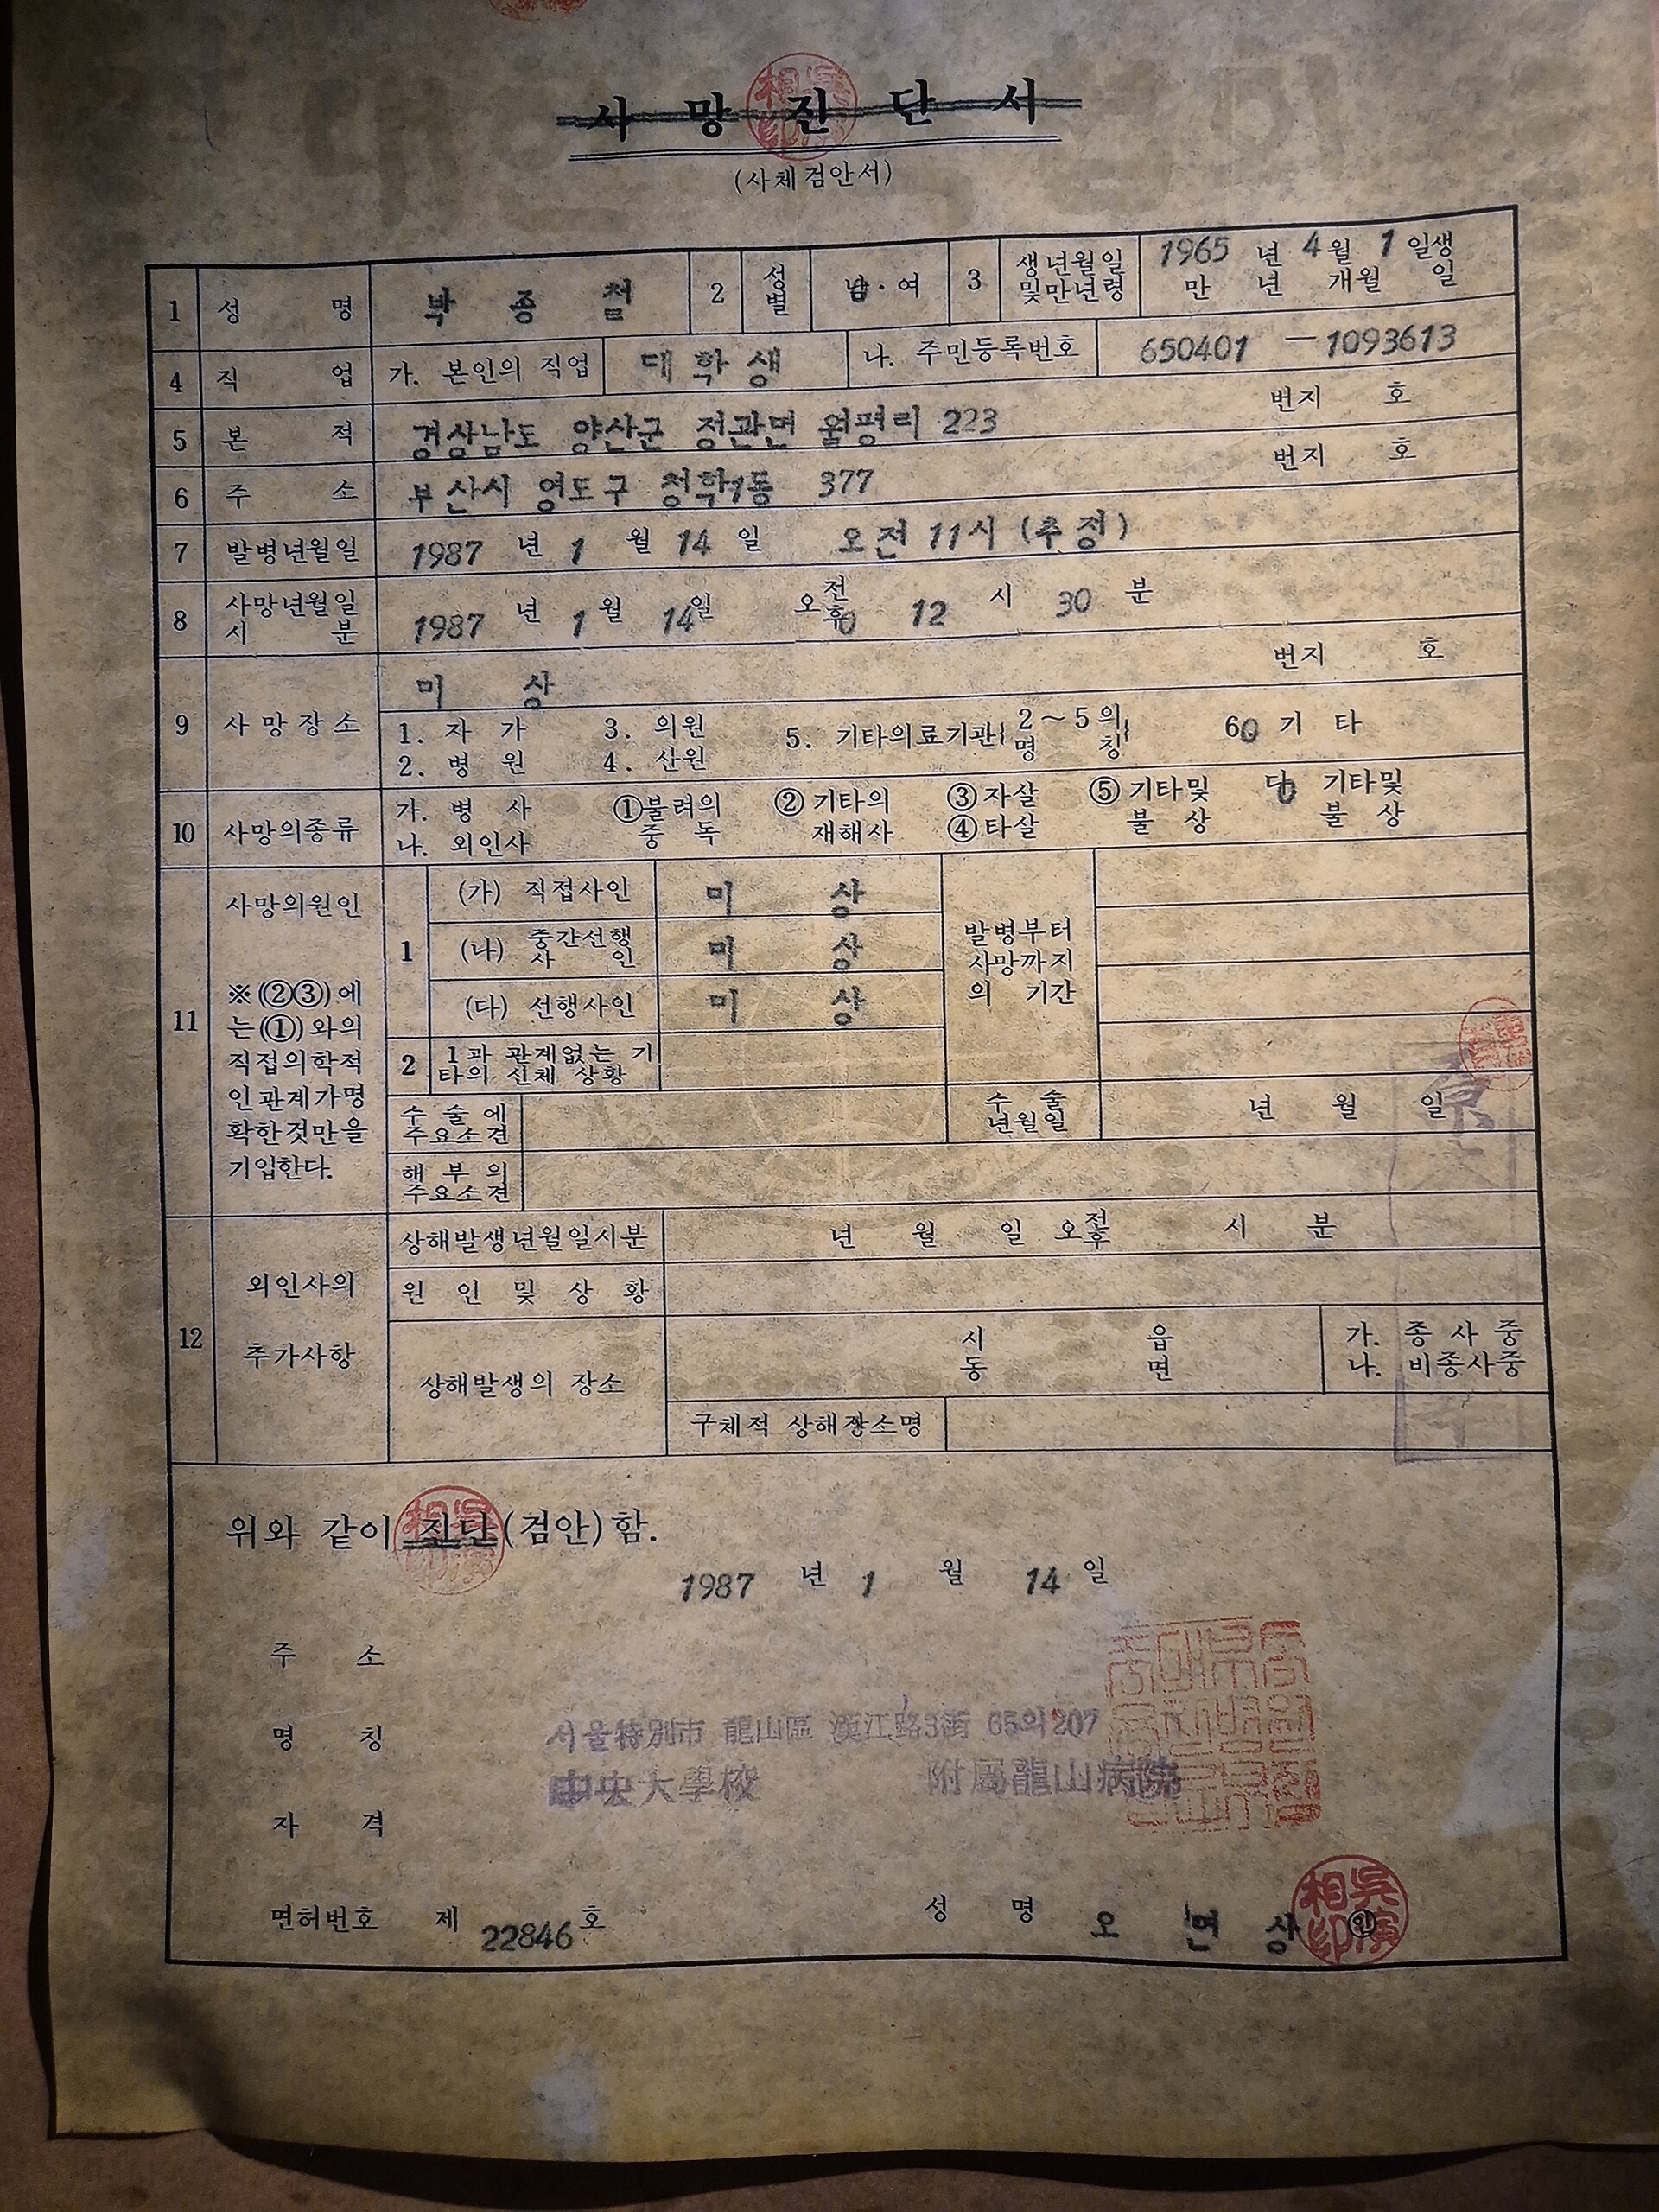 사 망 진 단 서
(사체검안서)
1 성 명 박 종 철 2 성별 남·여 3 생년월일 및만년령 1965 년 4월 1 일생
만 년 개월 일
4 직 업 가. 본인의 직업 대학생 나. 주민등록번호 650401 — 1093613
5 본 적 경상남도 양산군 정관면 월평리 223 번지 호
6 주 소 부산시 영도구 청학1동 377 번지 호
7 발병년월일 1987 년 1 월 14 일 오전 11시 (추정)
8 사망년월일 시 분 1987 년 1 월 14일 오 전 후 12 시 30 분
9 사망장소 미 상 번지 호
1. 자 가 3. 의원 5. 기타의료기관 2~5의 명 칭 6 기 타
2. 병 원 4. 산원
10 사망의종류 가. 병 사 ①불려의 중 독 ②기타의 재해사 ③자살 ⑤기타및 불 상 다 기타및 불 상
나. 외인사 ④타살
11 사망의원인 1 (가) 직접사인 미 상 발병부터 사망까지의 기간
(나) 중간선행사 인 미 상
(다) 선행사인 미 상
※(②③)에
는(①)와의
직접의학적
인관계가명
확한것만을
기입한다.
2 1과 관계없는 기
타의 신체 상황
수 술 에 주요소견 수 술 년월일 년 월 일
해 부 의 주요소견
12 외인사의 추가사항 상해발생년월일시분 년 월 일 오 전 후 시 분
원 인 및 상 황
상해발생의 장소 시 동 읍 면 가. 종 사 중
나. 비종사중
구체적 상해장소명
위와 같이 진단(검안)함.
1987 년 1 월 14 일
주 소
명 칭 서울特別市 龍山區 漢江路3街 65의207
中央大學校 附屬龍山病院
자 격
면허번호 제 22846 호 성 명 오 연 상 ㊞